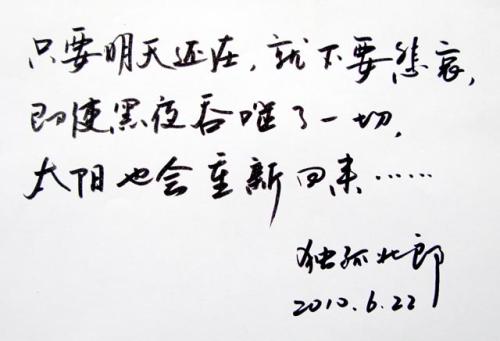 只要明天还在，就不要悲哀，
即使黑夜吞噬了一切，
太阳也会重新回来……
独孤北郎
2010.6.22